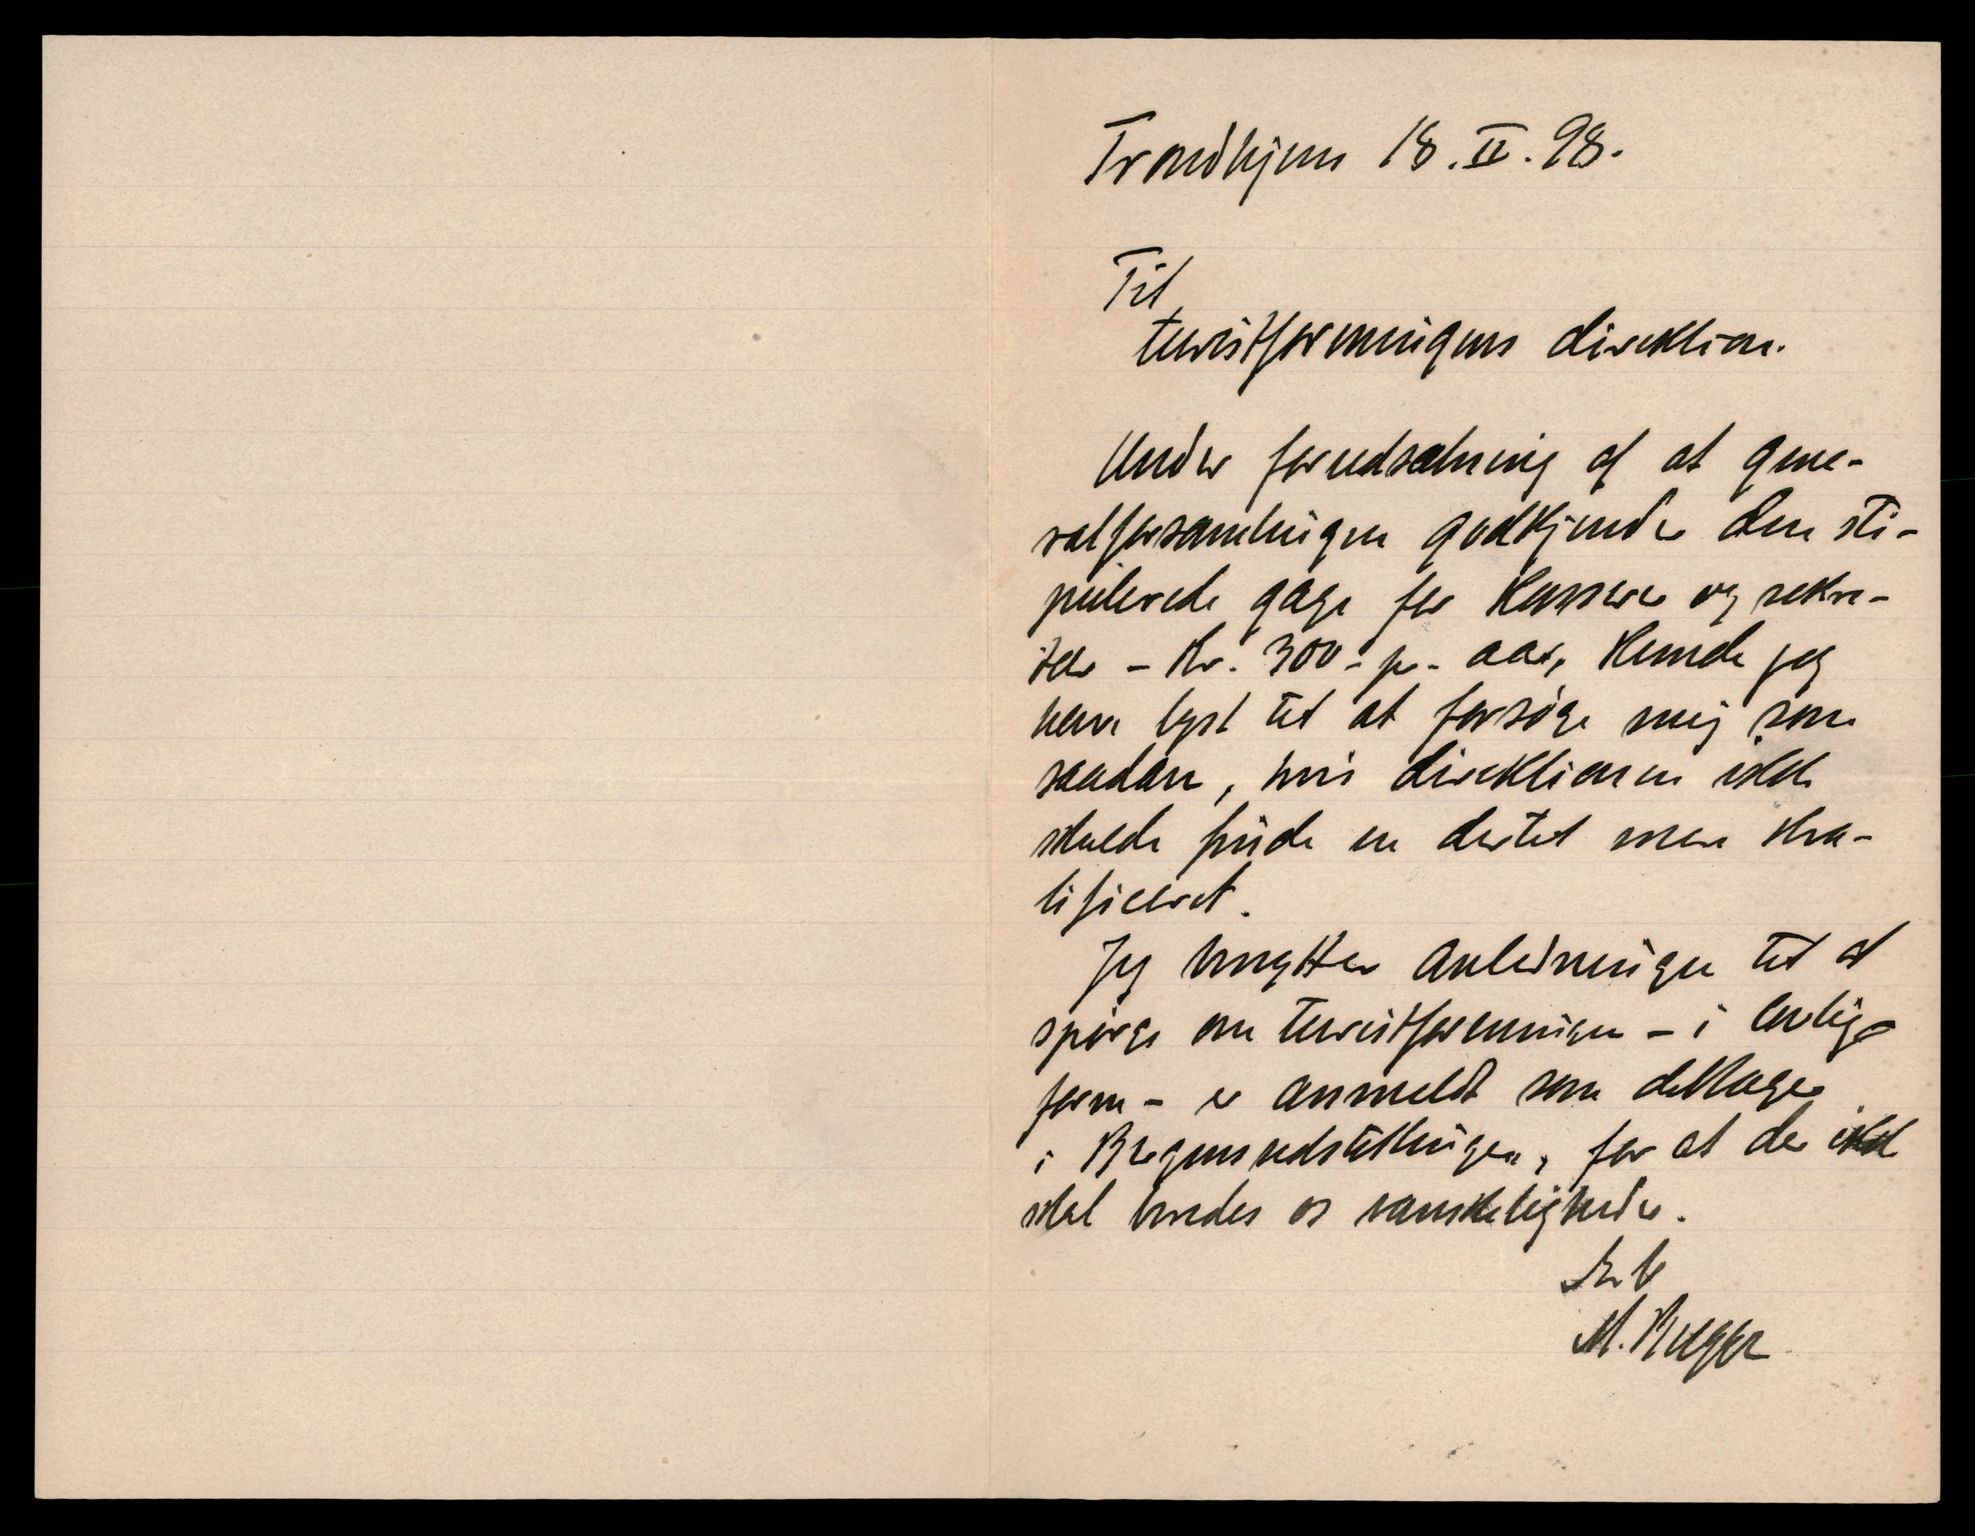 Trondhjem 18.II.98.
Til
turistforeningens direktion.
Under forudsætning af at gene-
ralforsamlingen godkjender den sti-
pulerede gage for kasserer og sekre-
tær - Kr. 300 - pr. aar, kunde jeg
have lyst til at forsøge mig som
saadan, hvis direktionen ikke
skulde finde en dertil mere kva-
lificeret.
Jeg benytter anledningen til at
spørge om turistforeningen - i lovlig
form - er anmeldt som deltager
i Bergensudstillingen, for at der ikke
skal voldes os vanskeligheder.
Ærb